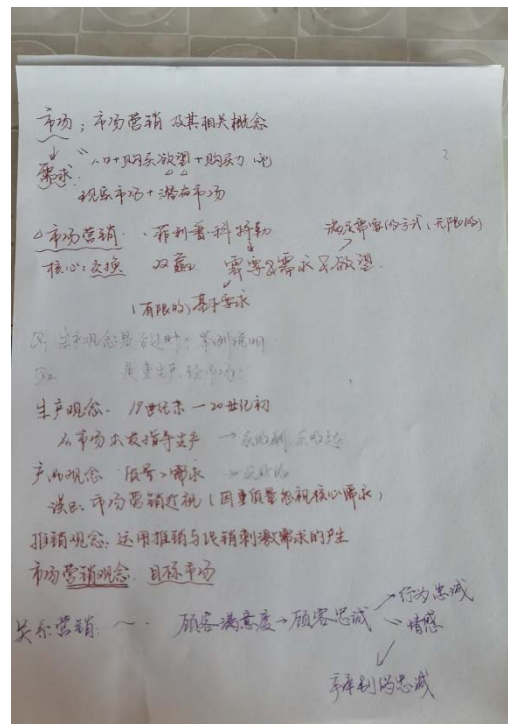 市场：市场营销及其相关概念
需求："人口+购买欲望+购买力
现实市场+潜在市场
△市场营销. 菲利普·科特勒 满足需要的方式(无限的)
核心：交换 双赢 需要&需求&欲望.
(有限的)基于要求
Q: 生产观念是否过时：案例说明
生产观念. 19世纪末—20世纪初
从市场出发指导生产
产品观念 质量>需求
误区：市场营销近视(因重质量忽视核心需求)
推销观念：运用推销与促销刺激需求的产生
市场营销观念. 目标市场
关系营销：～. 顾客满意度→顾客忠诚 行为忠诚
情感
牵制的忠诚